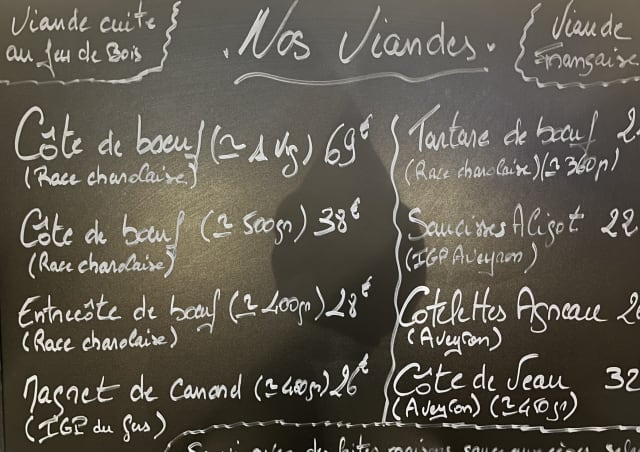 Viande cuite
au feu de Bois
. Nos Viandes .
Viande
Française
Côte de boeuf (≃ 1 kg) 69€
(Race charolaise)
Côte de boeuf (≃ 500gr) 38€
(Race charolaise)
Entrecôte de boeuf (≃ 400gr) 28€
(Race charolaise)
Magret de Canard (≃ 400gr) 26€
(IGP du Gers)
Tartare de boeuf
(Race charolaise) (≃ 360gr)
Saucisses Aligot 22
(IGP Aveyron)
Cotelettes Agneau
(Aveyron)
Côte de Veau 32
(Aveyron) (≃ 450gr)
frites maisons